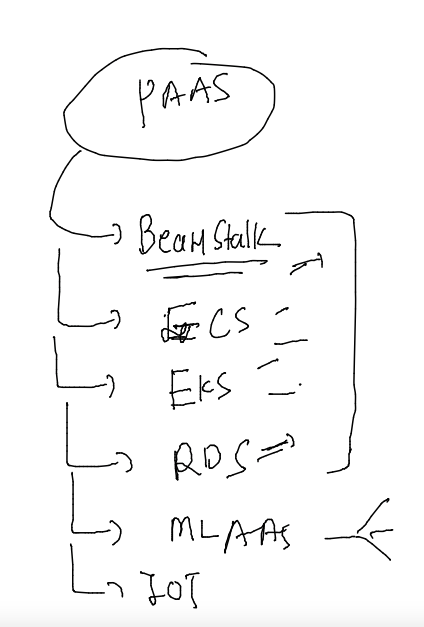 PAAS
BeamStalk
ECS
EKS
RDS
MLAAS
IOT